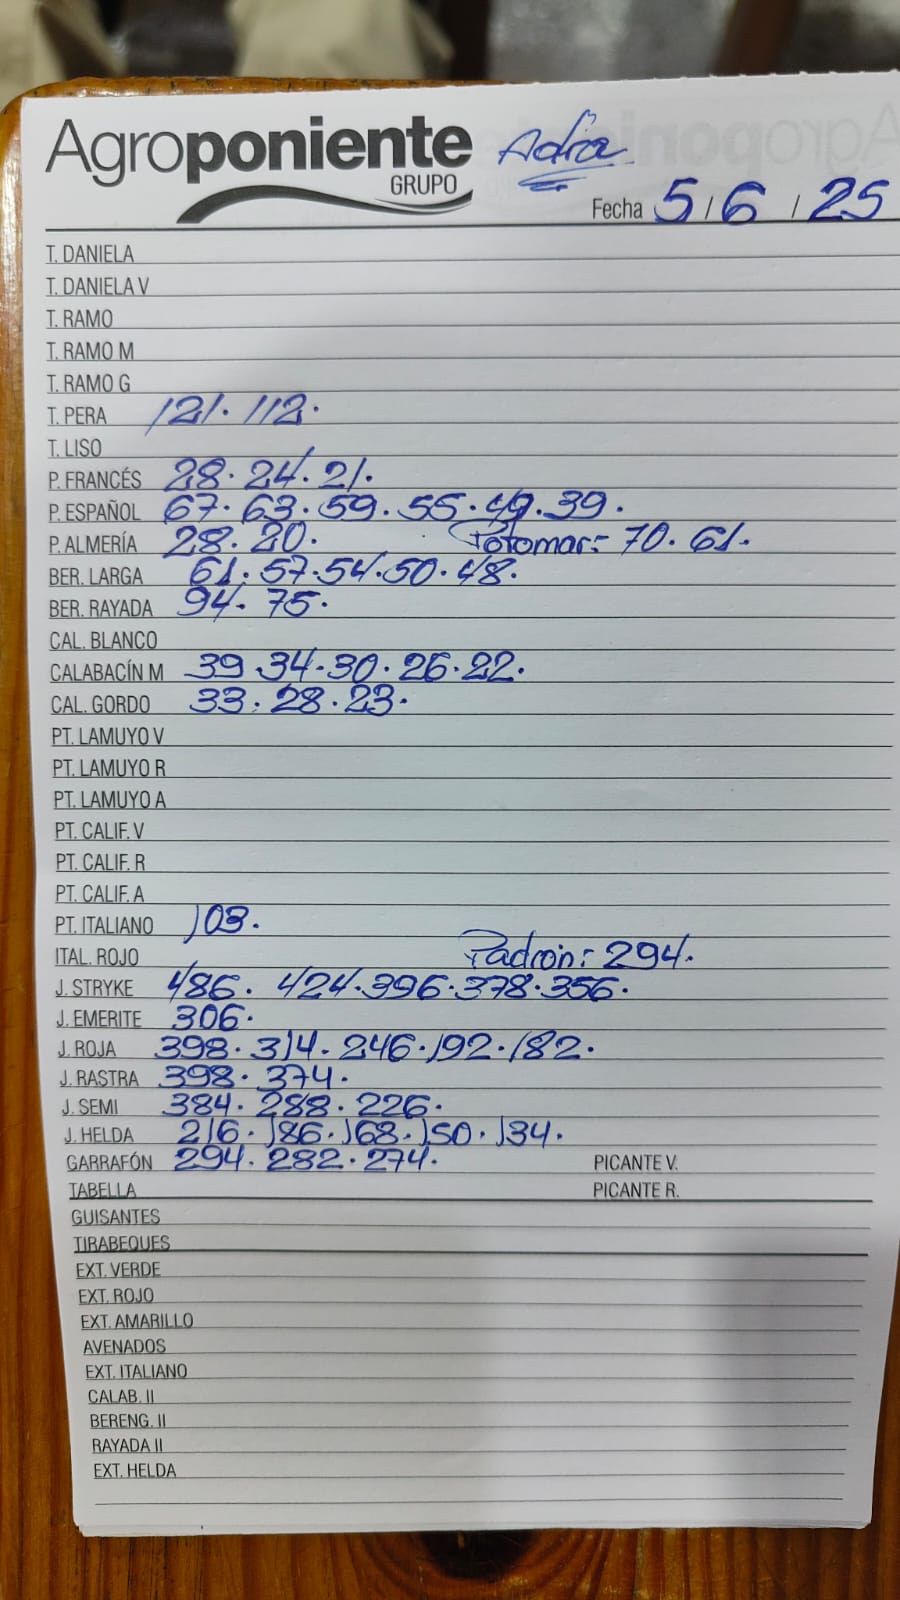 Agroponiente Adra
GRUPO
Fecha 5/6/25
T. DANIELA
T. DANIELA V
T. RAMO
T. RAMO M
T. RAMO G
T. PERA 121. 112.
T. LISO
P. FRANCÉS 28. 24. 21.
P. ESPAÑOL 67. 63. 59. 55. 49. 39.
P. ALMERÍA 28. 20. Totomar: 70. 61.
BER. LARGA 61. 57. 54. 50. 48.
BER. RAYADA 94. 75.
CAL. BLANCO
CALABACÍN M 39. 34. 30. 26. 22.
CAL. GORDO 33. 28. 23.
PT. LAMUYO V
PT. LAMUYO R
PT. LAMUYO A
PT. CALIF. V
PT. CALIF. R
PT. CALIF. A
PT. ITALIANO 103.
ITAL. ROJO Padrón: 294.
J. STRYKE 486. 424. 396. 378. 356.
J. EMERITE 306.
J. ROJA 398. 314. 246. 192. 182.
J. RASTRA 398. 374.
J. SEMI 384. 288. 226.
J. HELDA 216. 186. 168. 150. 134.
GARRAFÓN 294. 282. 274. PICANTE V.
TABELLA PICANTE R.
GUISANTES
TIRABEQUES
EXT. VERDE
EXT. ROJO
EXT. AMARILLO
AVENADOS
EXT. ITALIANO
CALAB. II
BERENG. II
RAYADA II
EXT. HELDA